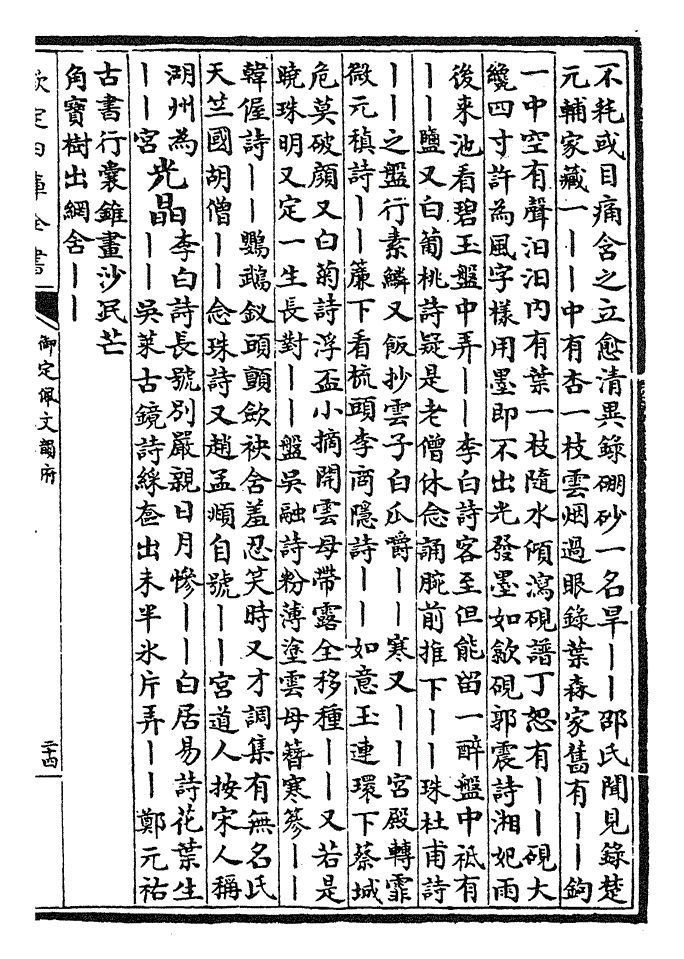 不耗或目痛含之立愈清異錄硼砂一名旱——邵氏聞見錄楚
元輔家藏一——中有杏一枝雲烟過眼錄葉森家舊有——鉤
一中空有聲汨汨内有葉一枝隨水傾瀉硯譜丁恕有——硯大
纔四寸許為風字樣用墨即不出光發墨如歙硯郭震詩湘妃雨
後来池看碧玉盤中弄——李白詩客至但能留一醉盤中祗有
——鹽又白葡桃詩疑是老僧休念誦腕前推下——珠杜甫詩
——之盤行素鱗又飯抄雲子白瓜嚼——寒又——宮殿轉霏
微元稹詩——簾下看梳頭李商隱詩——如意玉連環下蔡城
危莫破顔又白菊詩浮盃小摘開雲母帶露全移種——又若是
曉珠明又定一生長對——盤吳融詩粉薄塗雲母簪寒篸——
韓偓詩——鸚鵡釵頭顫歛袂含羞忍笑時又才調集有無名氏
天竺國胡僧——念珠詩又趙孟頫自號——宮道人按宋人稱
湖州為——宮
光晶
李白詩長號別嚴親日月慘——白居易詩花葉生
——吳萊古鏡詩綵奩出未半氷片弄——鄭元祐
古書行囊錐畫沙民芒
角寶樹出網含——
欽定四庫全書
御定佩文韻府
二十四